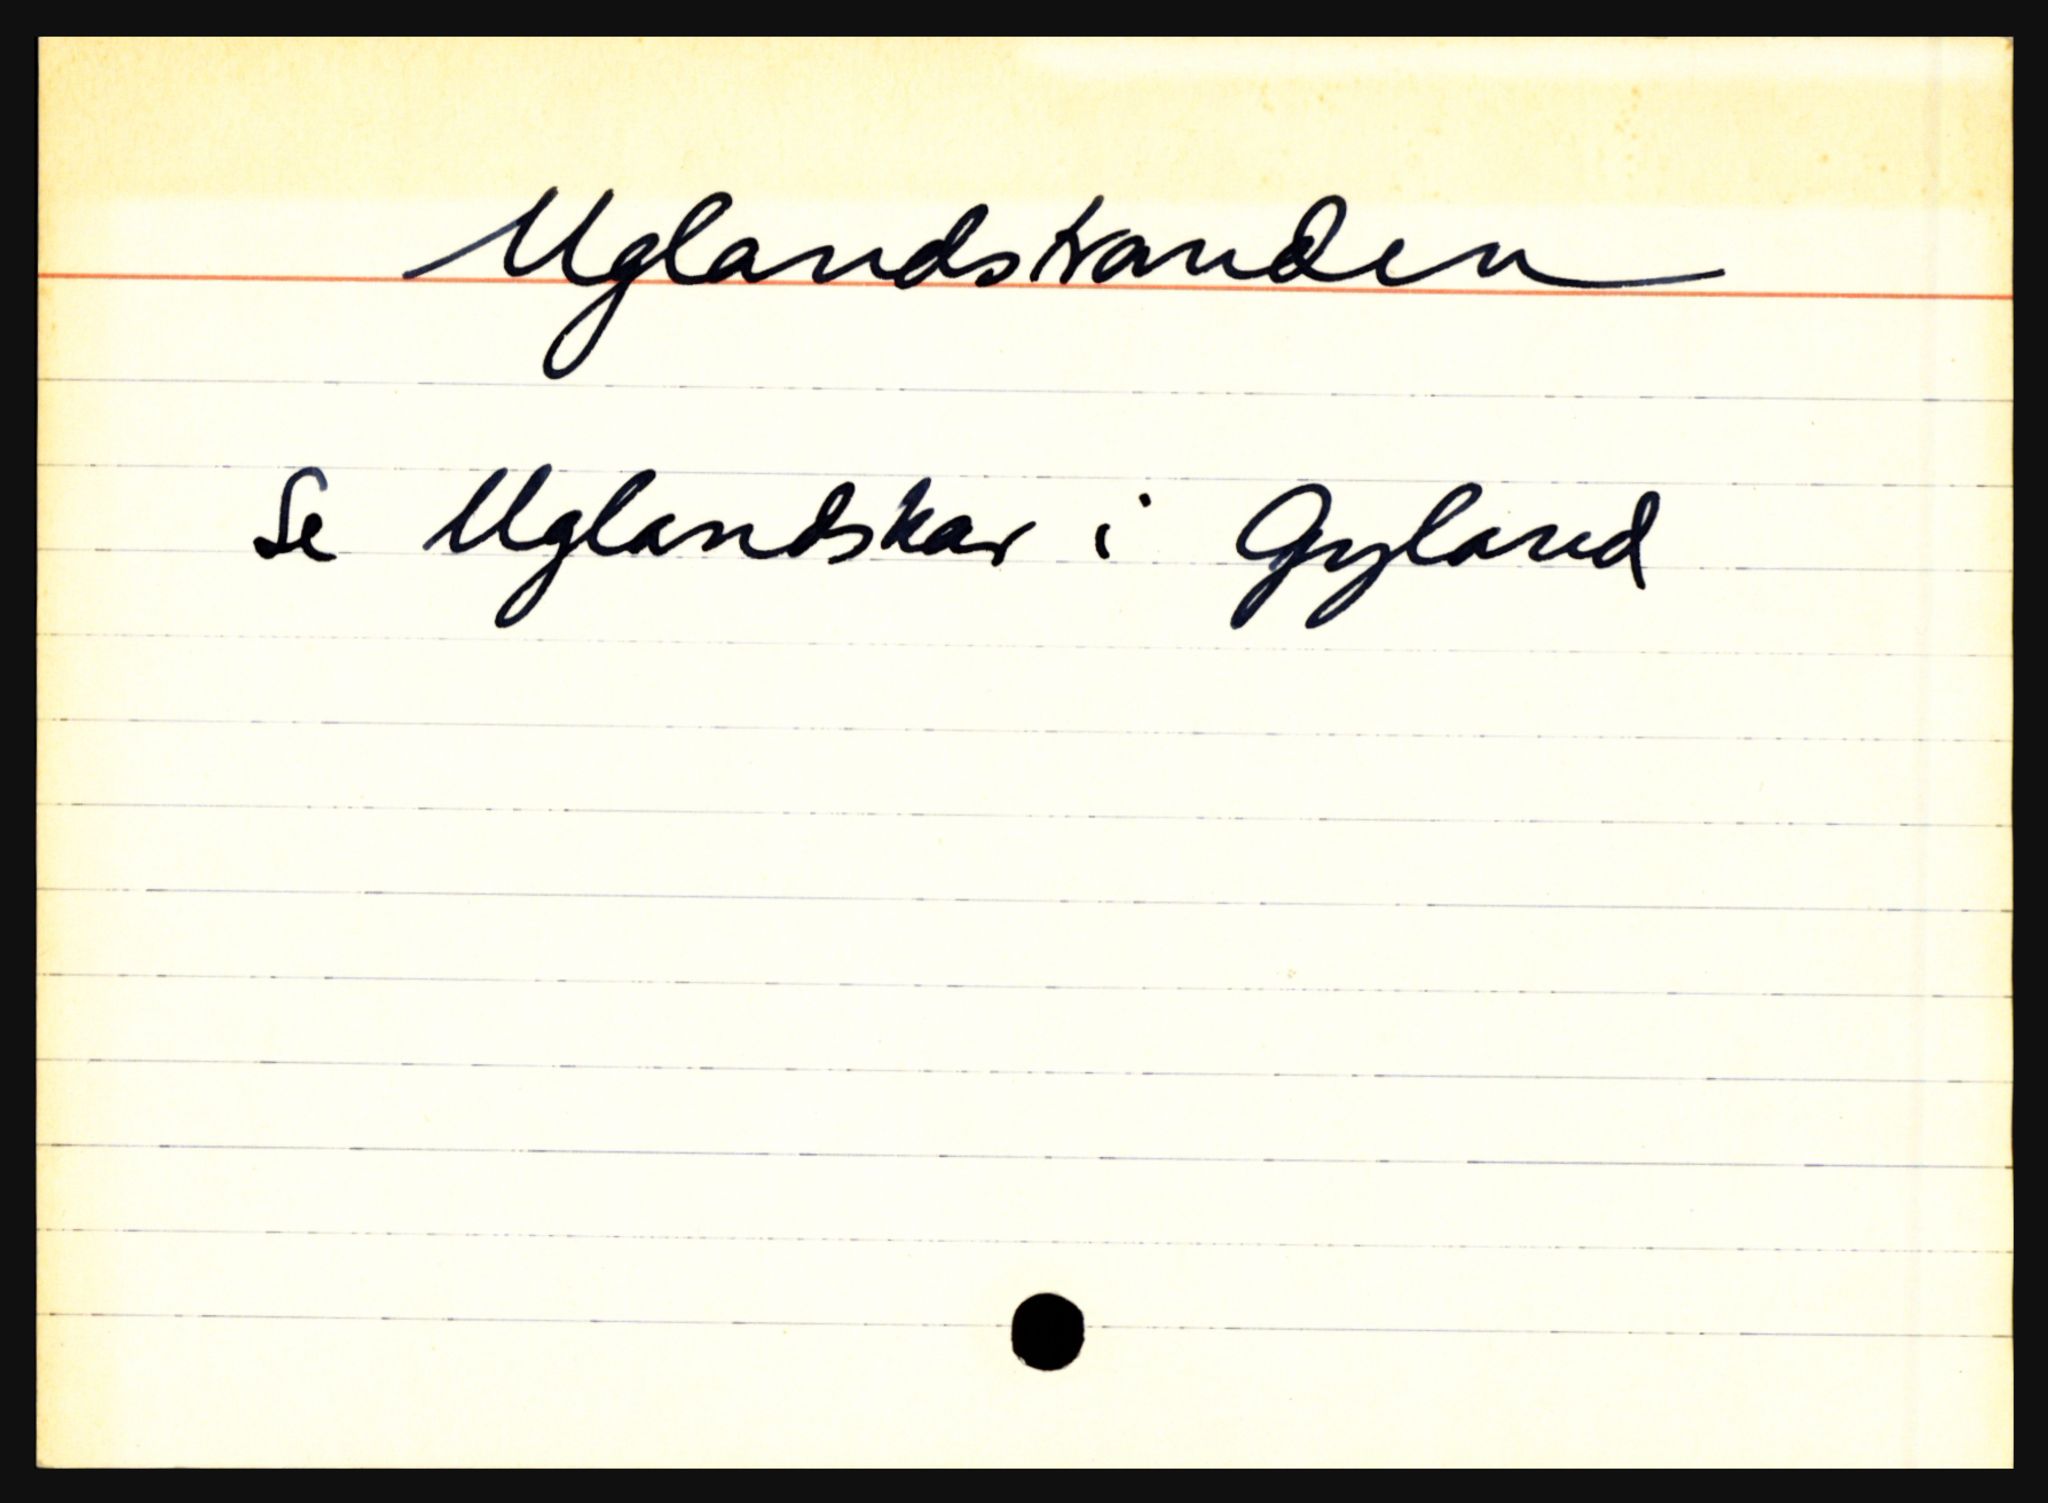 Uglandstranden
Se Uglandskar i Gyland